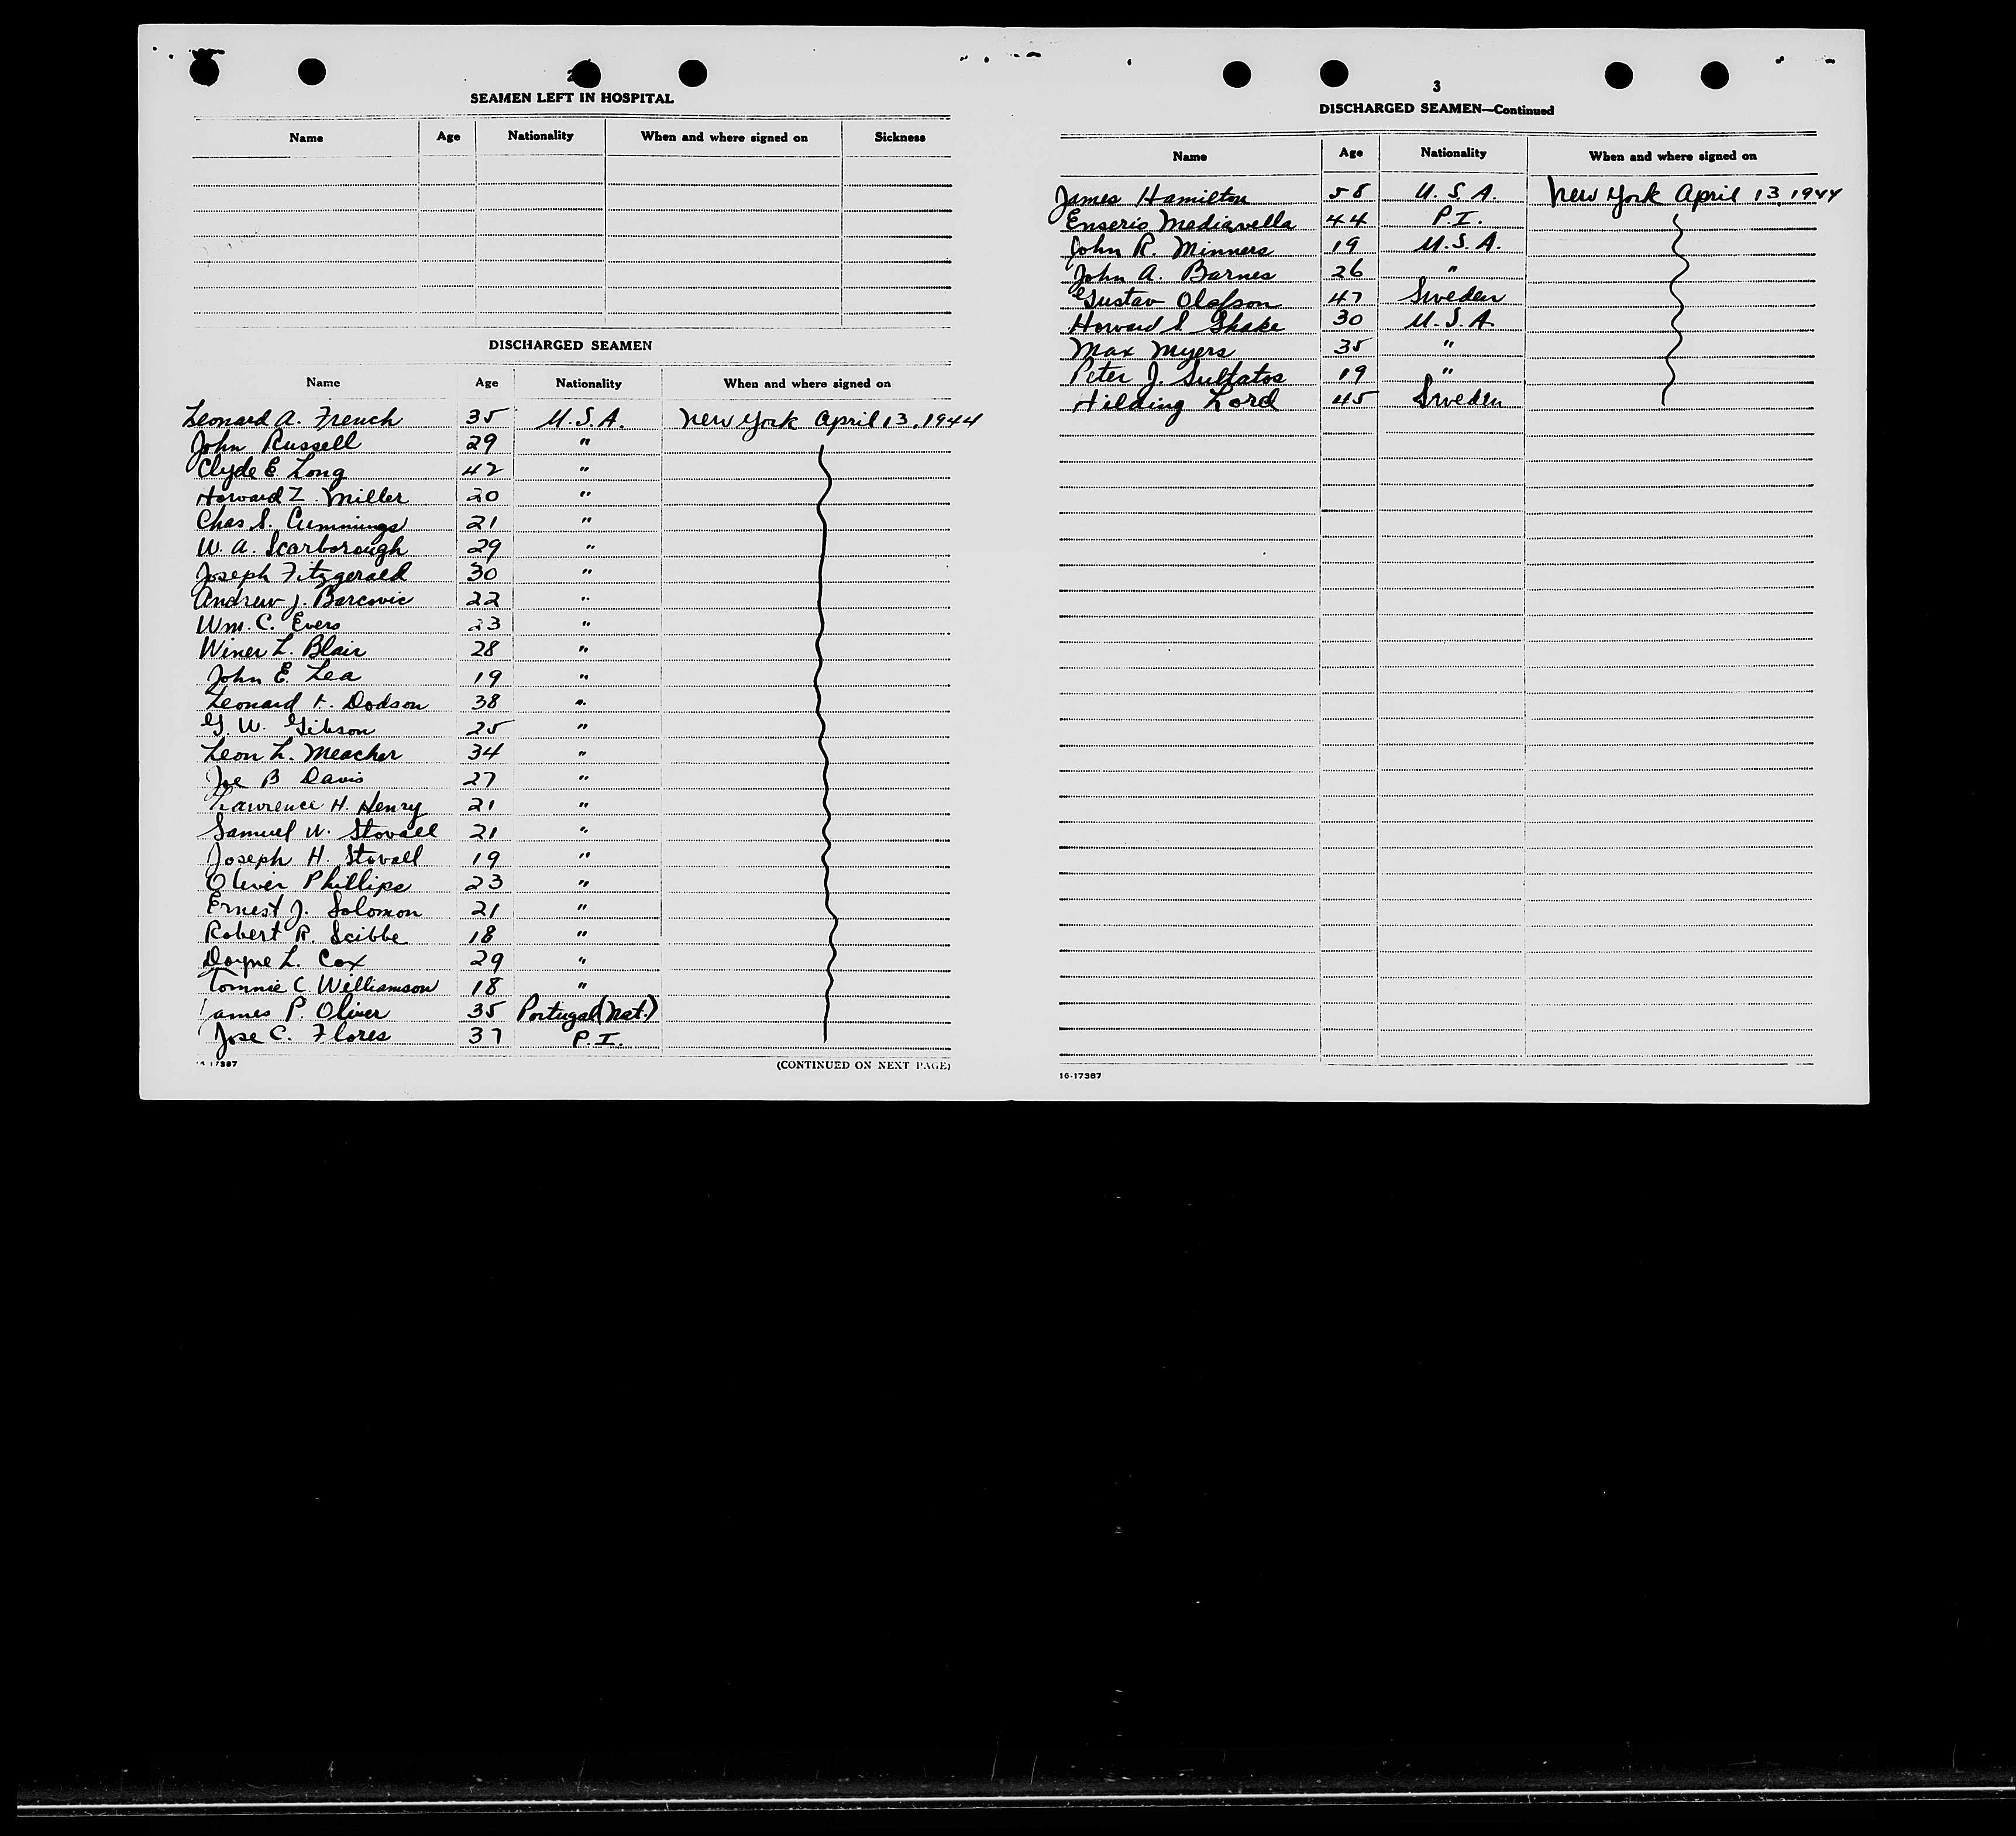 2
SEAMEN LEFT IN HOSPITAL
Name Age Nationality When and where signed on Sickness
DISCHARGED SEAMEN
Name Age Nationality When and where signed on
Leonard A. French 35 U.S.A. New York April 13, 1944
John Russell 29 "
Clyde E. Long 42 "
Howard Z. Miller 20 "
Chas S. Cummings 21 "
W. A. Scarborough 29 "
Joseph Fitzgerald 30 "
Andrew J. Barcovic 22 "
Wm. C. Evers 23 "
Winer L. Blair 28 "
John E Lea 19 "
Leonard F. Dodson 38 "
G. W. Gibson 25 "
Leon L. Meacher 34 "
Joe B Davis 27 "
Lawrence H. Henry 21 "
Samuel W. Stovall 21 "
Joseph H. Stovall 19 "
Oliver Phillips 23 "
Ernest J. Solomon 21 "
Robert R. Scibbe 18 "
Doyne L. Cox 29 "
Tommie C. Williamson 18 "
James P. Oliver 35 Portugal (Nat.)
Jose C. Flores 37 P.I.
16-17387 (CONTINUED ON NEXT PAGE)
3
DISCHARGED SEAMEN—Continued
Name Age Nationality When and where signed on
James Hamilton 58 U.S.A. New York April 13, 1944
Enserio Mediavella 44 P.I.
John R. Minners 19 U.S.A.
John A. Barnes 26 "
Gustav Olafson 47 Sweden
Howard S Shake 30 U.S.A
Max Myers 35 "
Peter J. Sulfatos 19 "
Hilding Lord 45 Sweden
16-17387